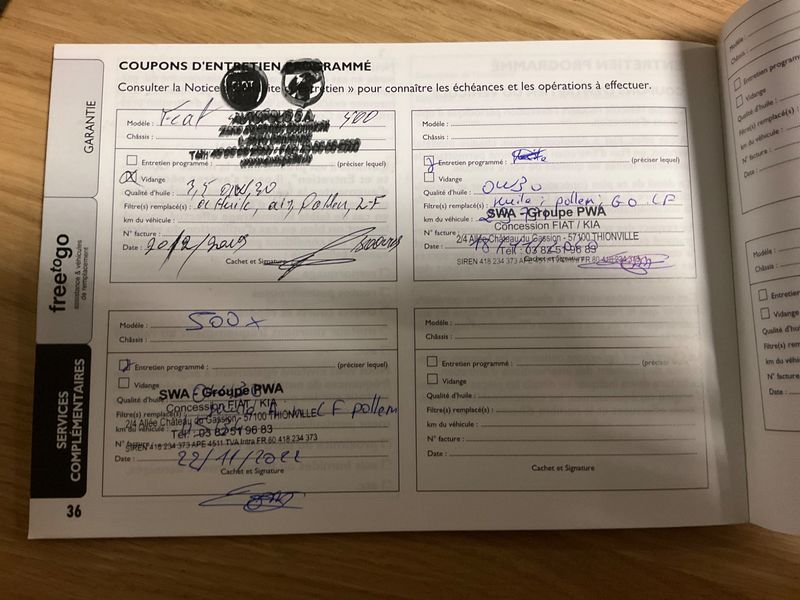 COUPONS D'ENTRETIEN PROGRAMMÉ
Consulter la Notice entretien » pour connaître les échéances et les opérations à effectuer.
GARANTIE
freetogo
assistance & véhicules
de remplacement
SERVICES
COMPLÉMENTAIRES
36
Modèle : Fiat 500
Châssis :
Entretien programmé : (préciser lequel)
Vidange
Qualité d'huile : 3,5 0W30
Filtre(s) remplacé(s) : Huile, air, Pollen, L-F
km du véhicule :
N° facture :
Date : 2012/2019
Cachet et Signature
Modèle :
Châssis :
Entretien programmé : (préciser lequel)
Vidange
Qualité d'huile : 0W30
Filtre(s) remplacé(s) : Huile; pollen; GO LF
km du véhicule :
SWA - Groupe PWA
Concession FIAT / KIA
N° facture :
2/4 Allée Château du Gassion - 57100 THIONVILLE
Date :
Tél : 03 82 51 96 83
Cachet et Signature
SIREN 418 234 373 APE 4511 TVA Intra FR 60 418 234 373
Modèle : 500x
Châssis :
Entretien programmé : (préciser lequel)
Vidange
Qualité d'huile :
SWA - Groupe PWA
Filtre(s) remplacé(s) : LF pollen
Concession FIAT / KIA
km du véhicule :
2/4 Allée Château du Gassion - 57100 THIONVILLE
Tél : 03 82 51 96 83
N° facture :
SIREN 418 234 373 APE 4511 TVA Intra FR 60 418 234 373
Date : 22/11/2022
Cachet et Signature
Modèle :
Châssis :
Entretien programmé : (préciser
Vidange
Qualité d'huile :
Filtre(s) remplacé(s) :
km du véhicule :
N° facture :
Date :
Cachet et Signature
Modèle :
Châssis :
Entretien program
Vidange
Qualité d'huile :
Filtre(s) remplacé(
km du véhicule :
N° facture :
Date :
Modèle :
Châssis :
Entretien
Vidange
Qualité d'hu
Filtre(s) rem
km du véhi
N° facture
Date :